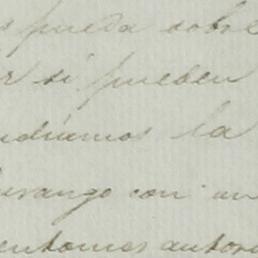 s pueda sobre
r si pueden
udiamos la
urango con un
entamos autori